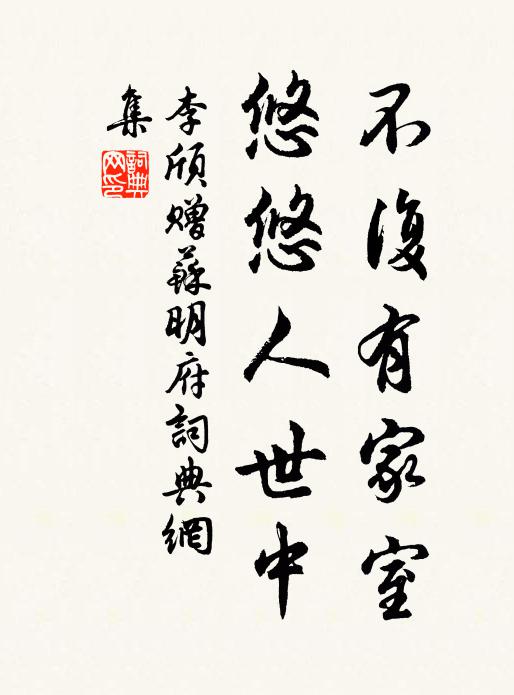 不復有家室
悠悠人世中
李頎贈蘇明府詞典網
集
詞典
网印